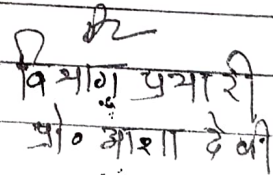 विभाग प्रभारी
प्रो० आशा देवी